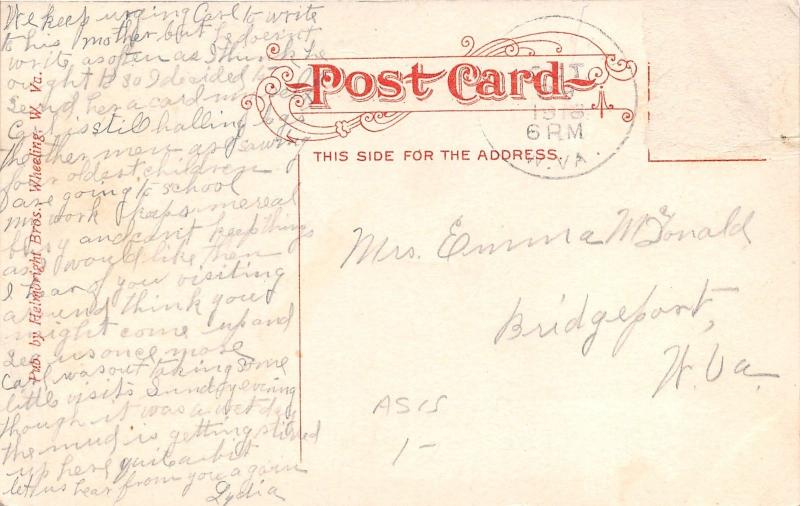 We keep urging Carl to write
to his mother but he doesn't
write as often as I think he
ought to so I decided to
send her a card
Carl is still halling logs
the other men are sawing
four oldest children
are going to school
my work keeps me real
busy and can't keep things
as I would like them
I hear of you visiting
around think you
might come up and
see us once more
Carl was out taking some
little visits Sunday evening
though it was a wet day
the mud is getting stirred
up here quite a bit
let us hear from you again
Lydia
Pub. by Heimbright Bros. Wheeling, W. Va.
Post Card
THIS SIDE FOR THE ADDRESS
6 PM
W. VA.
Mrs. Emma McDonald
Bridgeport,
W. Va.
ASIS
1-